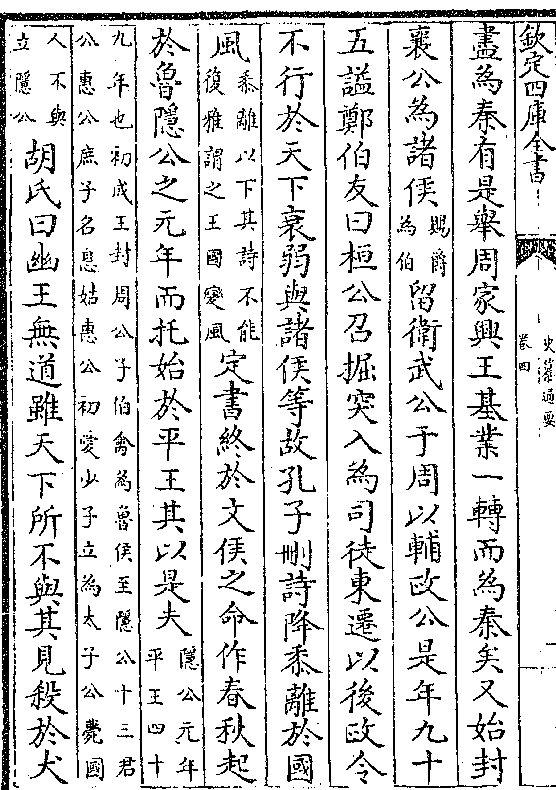 欽定四庫全書
史纂通要
卷四
盡為秦有是舉周家興王基業一轉而為秦矣又始封
襄公為諸侯賜爵為伯留衛武公于周以輔政公是年九十
五謚鄭伯友曰桓公召掘突入為司徒東遷以後政令
不行於天下衰弱與諸侯等故孔子刪詩降黍離於國
風黍離以下其詩不能復雅謂之王國變風定書終於文侯之命作春秋起
於魯隱公之元年而托始於平王其以是夫隱公元年平王四十
九年也初成王封周公子伯禽為魯侯至隱公十三君公惠公庶子名息姑惠公初愛少子立為太子公薨國
人不與立隱公胡氏曰幽王無道雖天下所不與其見殺於犬